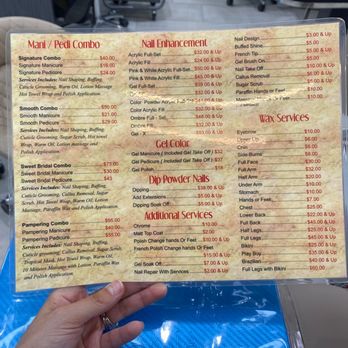 Mani / Pedi Combo
Signature Combo $40.00
Signature Manicure $16.00
Signature Pedicure $24.00
Services Includes: Nail Shaping, Buffing,
Cuticle Grooming, Warm Oil, Lotion Massage
Hot Towel Wrap and Polish Application.
Smooth Combo $50.00
Smooth Manicure $21.00
Smooth Pedicure $29.00
Services Includes: Nail Shaping, Buffing,
Cuticle Grooming, Sugar Scrub, Hot Towel
Wrap, Warm Oil, Lotion massage and
Polish Application.
Sweet Bridal Combo $75.00
Sweet Bridal Manicure $30.00
Sweet Bridal Pedicure $43
Services Includes: Nail Shaping, Buffing,
Cuticle Grooming, Callus Removal, Sugar
Scrub, Hot Towel Wrap, Warm Oil, Lotion
Massage, Paraffin Wax and Polish Application.
Pampering Combo $95.00
Pampering Manicure $40.00
Pampering Pedicure $55.00
Services Includes: Nail Shaping, Buffing,
Cuticle grooming, Callus Removal, Sugar Scrub,
Tropical Mask, Hot Towel Wrap, Warm Oil,
10 Minutes Massage with Lotion, Paraffin Wax
and Polish Application.
Nail Enhancement
Acrylic Full-Set
Acrylic Fill $24.00 & Up
Pink & White Acrylic Full-Set
Pink & White Acrylic Fill
Gel Full-Set
Color Powder Acrylic
Color Acrylic Fill
Ombre Full - Set
Ombre Fill
Gel - X
Gel Color
Gel Manicure ( Included Gel Take Off ) $32
Gel Pedicure ( Included Gel Take Off ) $37
Gel Polish
Dip Powder Nails
Dipping $38.00 & Up
Add Extensions $5.00 & Up
Dipping Soak Off $5.00 & Up
Additional Services
Chrome $10.00
Matt Top Coat $2.00
Polish Change hands Or Feet $10.00 & Up
French Polish Change hands Or Feet
$15.00 & Up
Gel Soak Off $7.00 & Up
Nail Repair With Services $2.00 & Up
Nail Design $3.00 & Up
Buffed Shine $5.00
French Tip $5.00 & Up
Gel Brush On $5.00
Nail Take Off $10.00 & Up
Callus Removal $5.00 & Up
Sugar Scrub
Paraffin Hands or Feet
Wax Services
Eyebrow $10.00
Chin
Side Burns
Full Face $30.00
Full Arm $32.00
Half Arm $20.00
Under Arm
Stomach
Hands or Feet
Chest $25.00
Lower Back $22.00 & Up
Full Back $45.00 & Up
Half Legs $25.00 & Up
Full Legs $45.00 & Up
Bikini $25.00 & Up
Play Boy $35.00 & Up
Brazilian $40.00 & Up
Full Legs with Bikini $60.00